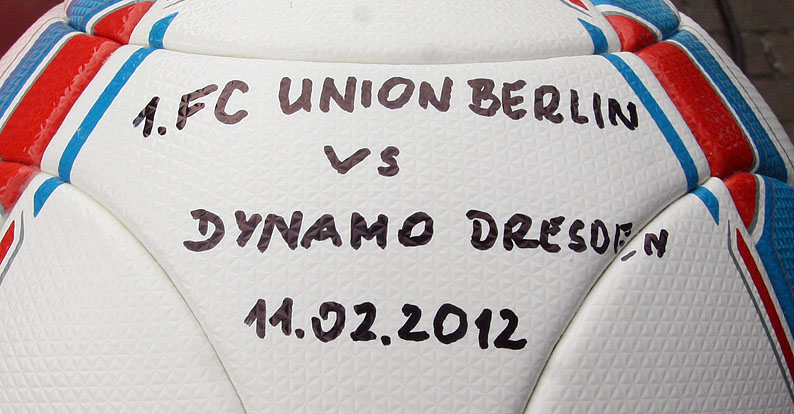 1.FC UNION BERLIN
VS
DYNAMO DRESDEN
11.02.2012